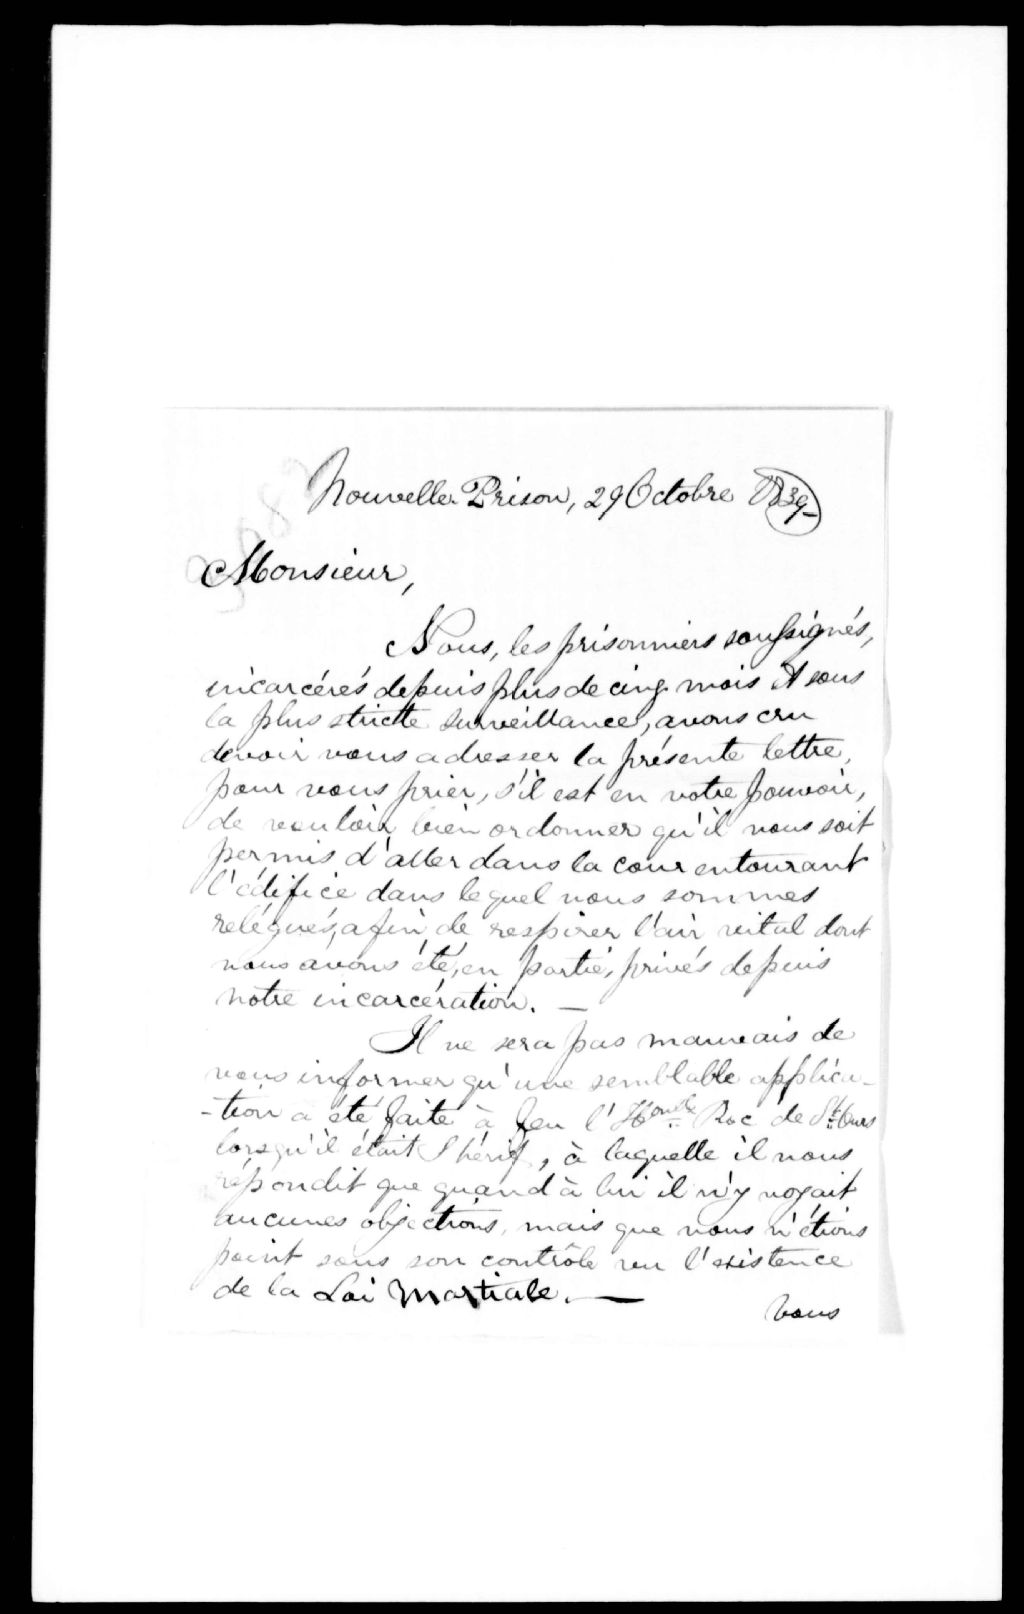 Nouvelle Prison, 29 Octobre 1839-
Monsieur,
Nous, les prisonniers soussignés,
incarcérés depuis plus de cinq mois et sous
la plus stricte surveillance, avons cru
devoir vous adresser la présente lettre,
pour vous prier, s'il est en votre pouvoir,
de vouloir bien ordonner qu'il nous soit
permis d'aller dans la cour entourant
l'édifice dans lequel nous sommes
relégués, afin de respirer l'air vital dont
nous avons été, en partie, privés depuis
notre incarcération. —
Il ne sera pas mauvais de
vous informer qu'une semblable applica-
-tion a été faite à feu l'Honble Roc de St. Ours
lorsqu'il était Shérif, à laquelle il nous
répondit que quand à lui il n'y voyait
aucunes objections, mais que nous n'étions
point sous son contrôle vu l'existence
de la Loi Martiale. —
Vous